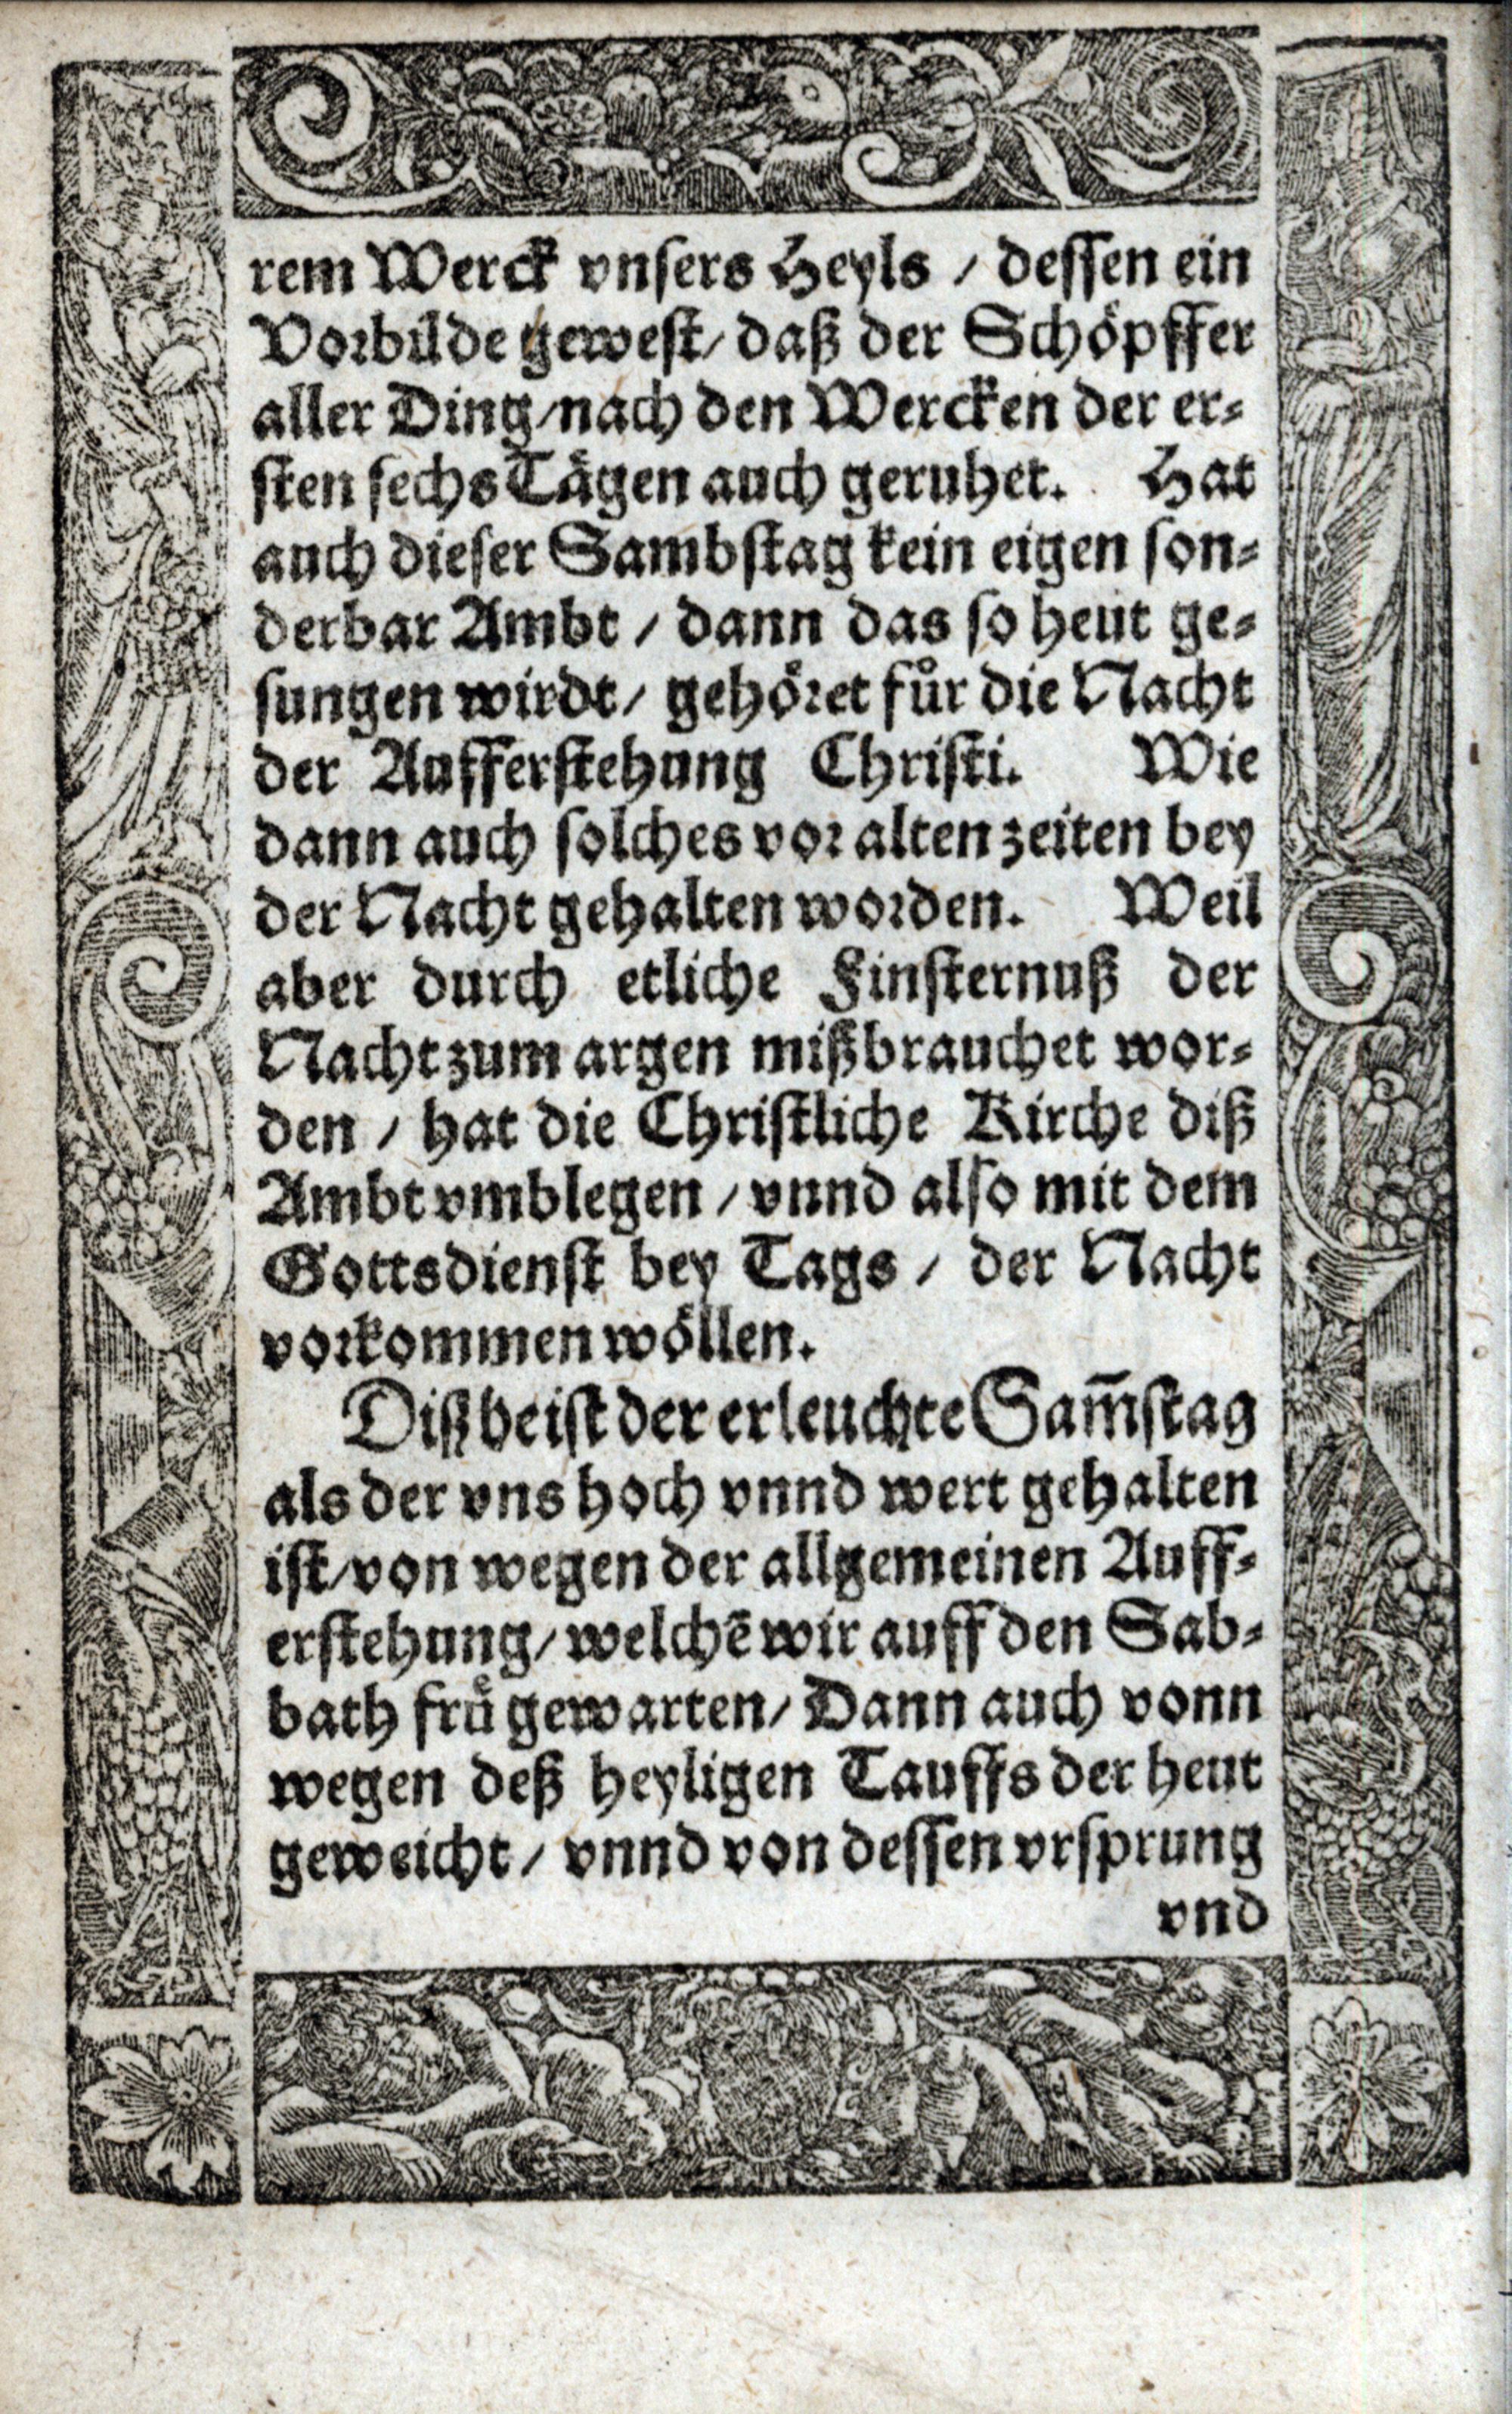 rem Werck vnsers Heyls / dessen ein
Vorbilde gewest / daß der Schöpffer
aller Ding / nach den Wercken der er⸗
sten sechs Tägen auch geruhet. Hat
auch dieser Sambstag kein eigen son⸗
derbar Ambt / dann das so heut ge⸗
sungen wirdt / gehöret fůr die Nacht
der Aufferstehung Christi. Wie
dann auch solches vor alten zeiten bey
der Nacht gehalten worden. Weil
aber durch etliche Finsternuß der
Nacht zum argen mißbrauchet wor⸗
den / hat die Christliche Kirche diß
Ambt vmblegen / vnnd also mit dem
Gottsdienst bey Tags / der Nacht
vorkommen wöllen.
Diß heist der erleuchte Sam̄stag
als der vns hoch vnnd wert gehalten
ist / von wegen der allgemeinen Auff⸗
erstehung / welchē wir auff den Sab⸗
bath frů gewarten / Dann auch vonn
wegen deß heyligen Tauffs der heut
geweicht / vnnd von dessen vrsprung
vnd